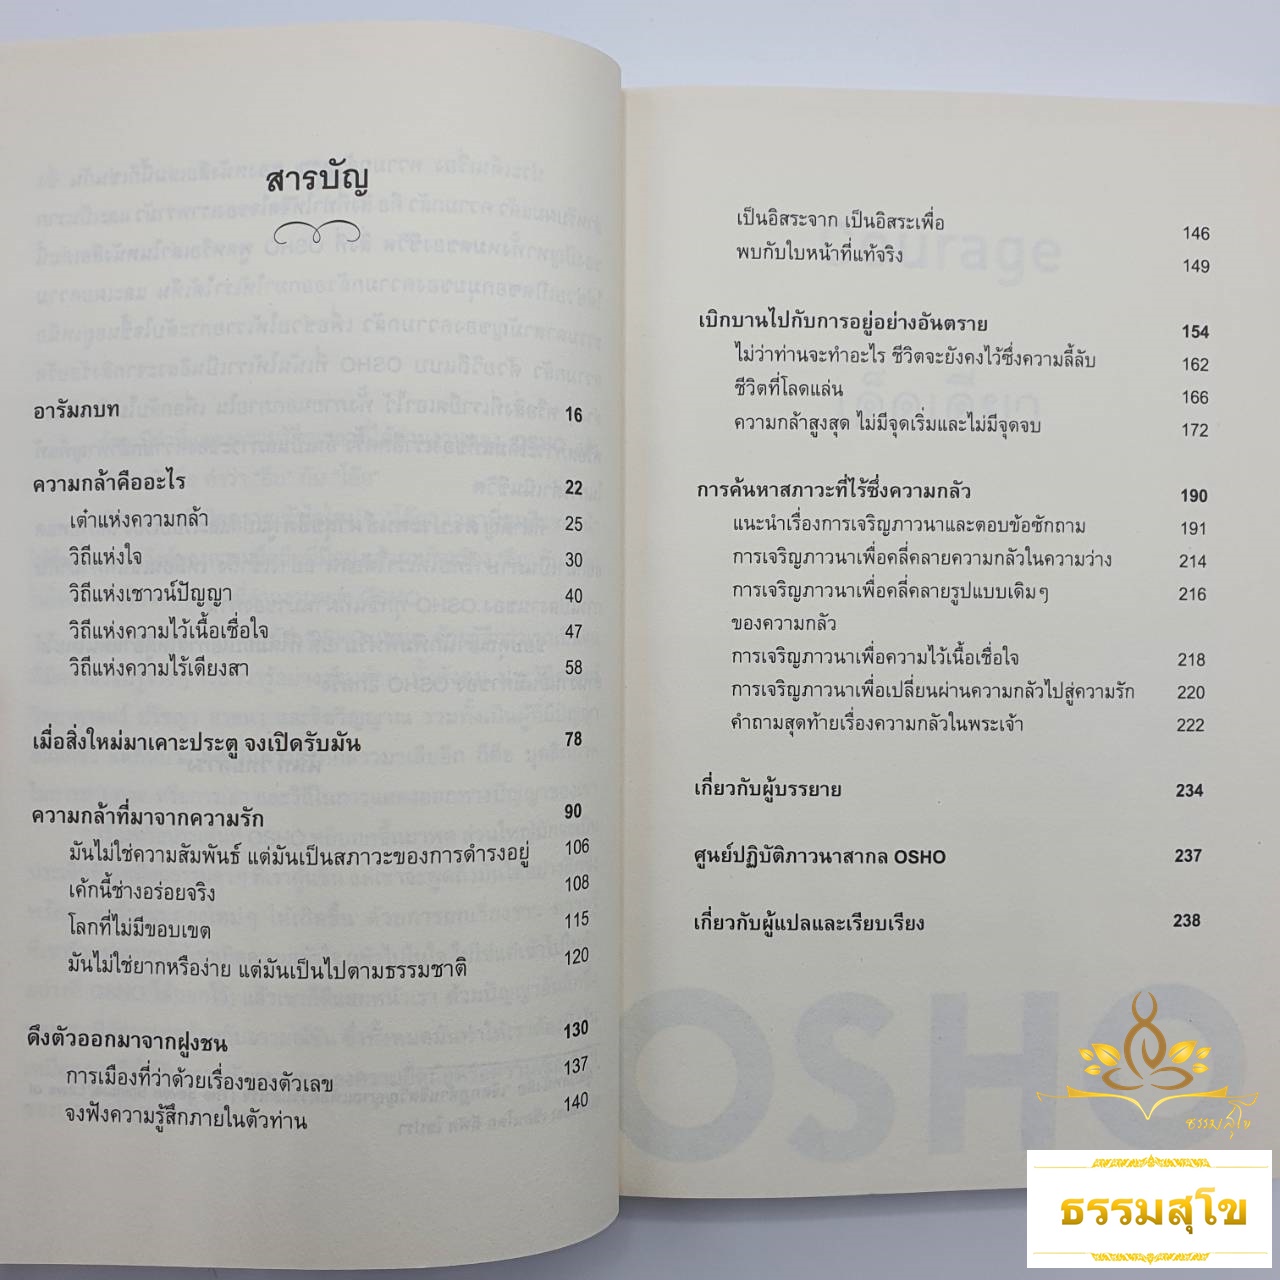 สารบัญ
อารัมภบท 16
ความกล้าคืออะไร 22
เต๋าแห่งความกล้า 25
วิถีแห่งใจ 30
วิถีแห่งเชาวน์ปัญญา 40
วิถีแห่งความไว้เนื้อเชื่อใจ 47
วิถีแห่งความไร้เดียงสา 58
เมื่อสิ่งใหม่มาเคาะประตู จงเปิดรับมัน 78
ความกล้าที่มาจากความรัก 90
มันไม่ใช่ความสัมพันธ์ แต่มันเป็นสภาวะของการดำรงอยู่ 106
เค้กนี้ช่างอร่อยจริง 108
โลกที่ไม่มีขอบเขต 115
มันไม่ใช่ยากหรือง่าย แต่มันเป็นไปตามธรรมชาติ 120
ดึงตัวออกมาจากฝูงชน 130
การเมืองที่ว่าด้วยเรื่องของตัวเลข 137
จงฟังความรู้สึกภายในตัวท่าน 140
เป็นอิสระจาก เป็นอิสระเพื่อ 146
พบกับใบหน้าที่แท้จริง 149
เบิกบานไปกับการอยู่อย่างอันตราย 154
ไม่ว่าท่านจะทำอะไร ชีวิตจะยังคงไว้ซึ่งความลี้ลับ 162
ชีวิตที่โลดแล่น 166
ความกล้าสูงสุด ไม่มีจุดเริ่มและไม่มีจุดจบ 172
การค้นหาสภาวะที่ไร้ซึ่งความกลัว 190
แนะนำเรื่องการเจริญภาวนาและตอบข้อซักถาม 191
การเจริญภาวนาเพื่อคลี่คลายความกลัวในความว่าง 214
การเจริญภาวนาเพื่อคลี่คลายรูปแบบเดิมๆ 216
ของความกลัว
การเจริญภาวนาเพื่อความไว้เนื้อเชื่อใจ 218
การเจริญภาวนาเพื่อเปลี่ยนผ่านความกลัวไปสู่ความรัก 220
คำถามสุดท้ายเรื่องความกลัวในพระเจ้า 222
เกี่ยวกับผู้บรรยาย 234
ศูนย์ปฏิบัติภาวนาสากล OSHO 237
เกี่ยวกับผู้แปลและเรียบเรียง 238
OSHO
ธรรมสุโข
ธรรมสุโข